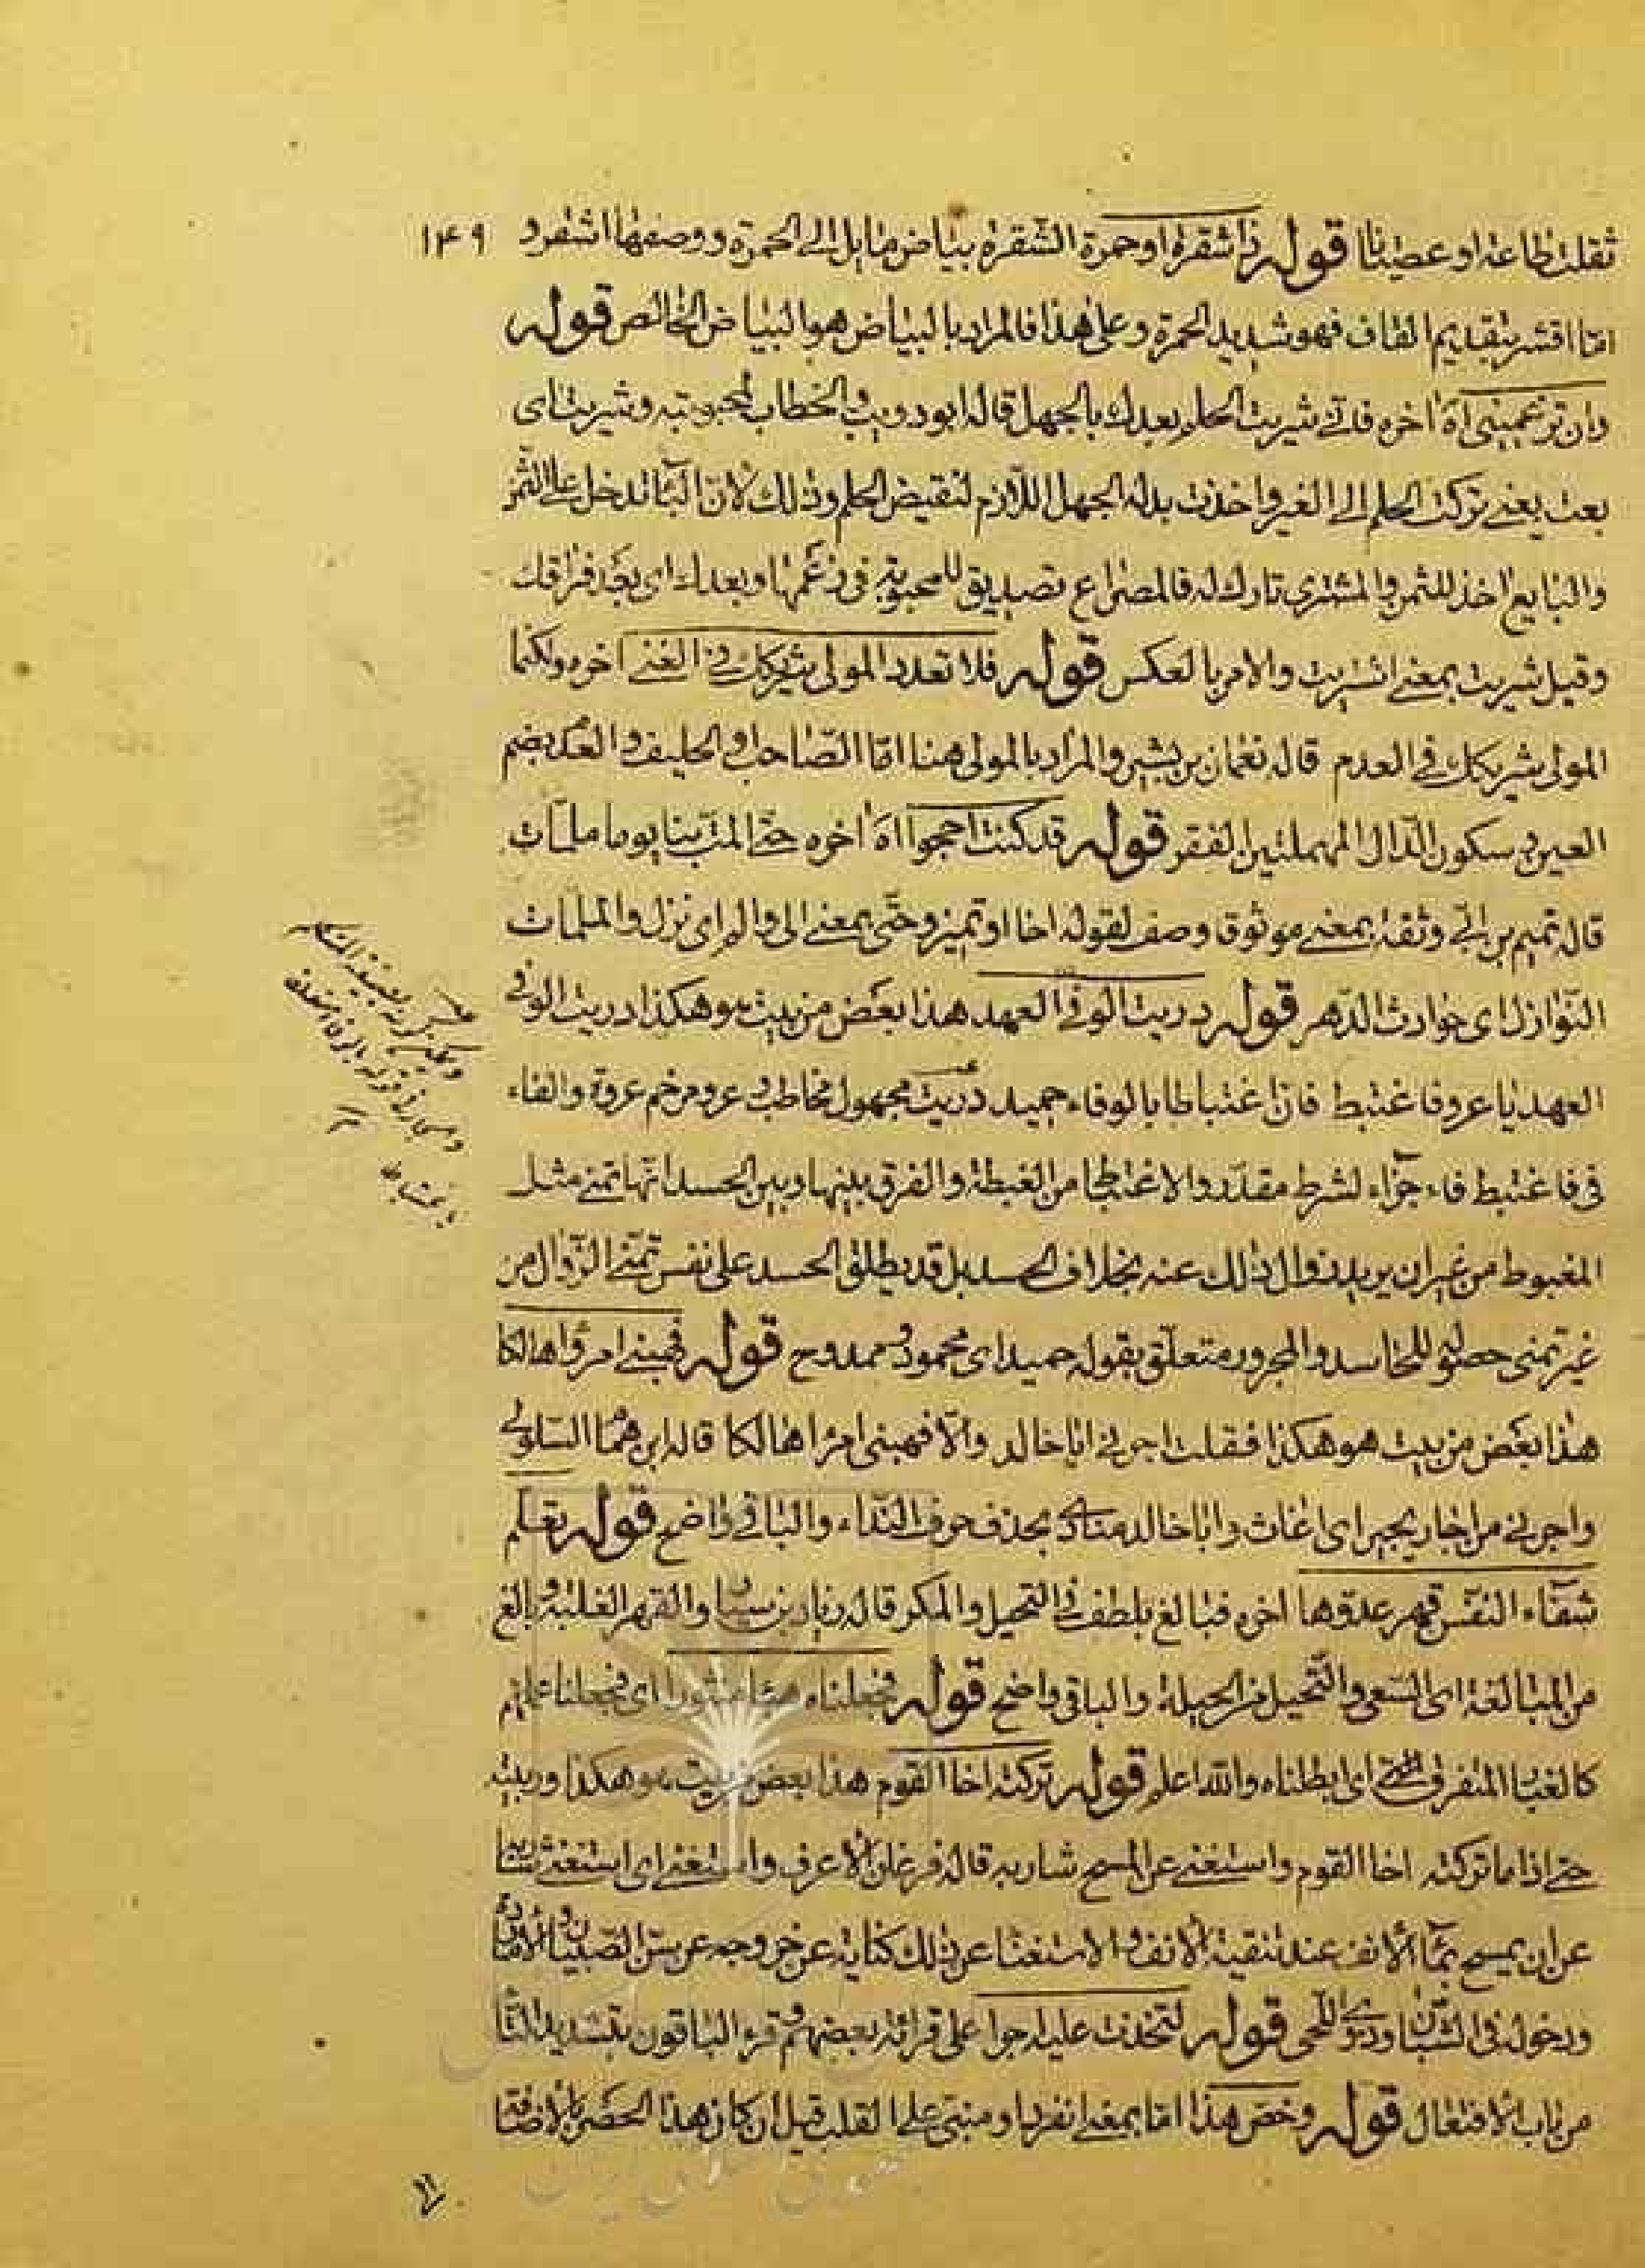 ١٤٩
ثقلت طاعة او عصيانا قوله ذا شقرة او حمرة الشقرة بياض مايل الى الحمرة ووصفها اشقر و
اما اقشر بتقديم القاف فهو شديد الحمرة وعلى هذا فالمراد بالبياض هو البياض الخالص قوله
وان تزعمينى اه اخره فانى شريت الحلم بعدك بالجهل قاله ابو ذويب والخطاب لمحبوبته وشريت اى
بعت يعنى تركت الحلم الى الغير واخذت بدله الجهل اللازم لنقيض الحلم وذلك لان البا تدخل على الثمن
والبايع اخذ للثمن والمشترى تارك له فالمصراع تصديق للمحبوبة فى زعمها وبعدك اى بعد فراقك
وقيل شريت بمعنى اشتريت والامر بالعكس قوله فلا تعدد المولى شريكك فى الغنى اخره ولكنما
المولى شريكك فى العدم قاله نعمان بن بشير والمراد بالمولى هنا اما الصاحب او الحليف والعدم بضم
العين و سكون الدال المهملتين الفقر قوله قد كنت احجوا اه اخره حتى المت بنا يوما ملمات
قاله تميم بن ابى وثقة بمعنى موثوق وصف لقوله اخا او تميز وحتى بمعنى الى والم اى نزل والملمات
النوازل اى حوادث الدهر قوله دريت الوفى العهد هذا بعض من بيت هو هكذا دريت الوفى
العهد يا عرو فاغتبط فان اغتباطا بالوفاء حميد دريت مجهول مخاطب و عرو مرخم عروة والفاء
فى فاغتبط فاء جزاء لشرط مقدر والاغتباط من الغبطة والفرق بينها وبين الحسد انها تمنى مثل
المغبوط من غير ان يريد زوال ذلك عنه بخلاف الحسد بل قد يطلق الحسد على نفس تمنى الزوال من
غير تمنى حصوله للحاسد والمجرور متعلق بقوله حميد اى محمود و ممدوح قوله فهبنى امرؤا هالكا
هذا بعض من بيت هو هكذا فقلت اجرنى ابا خالد والا فهبنى امرا هالكا قاله ابن همام السلولى
واجرنى من اجار يجير اى اغاث وابا خالد منادى بحذف حرف النداء والباقى واضح قوله تعلم
شفاء النفس قهر عدوها اخره فبالغ بلطف فى التحيل والمكر قاله زياد بن سيار والقهر الغلبة وبالغ
من المبالغة اى السعى والتحيل من الحيلة والباقى واضح قوله فجعلناه هباء منثورا اى فجعلنا عملهم
كالغبار المتفرق اى ابطلناه والله اعلم قوله تركته اخا القوم هذا بعض من بيت هو هكذا وربيته
حتى اذا ما تركته اخا القوم واستغنى عن المسح شاربه قاله فرعان الاعرف واستغنى اى استغنى شاربه
عن ان يمسح بماء الانف عند تنقية الانف والاستغناء عن ذلك كناية عن خروجه عن سن الصبيان
ودخوله فى الشبان وذوى اللحى قوله لتخذت عليه اجرا على قرائة بعضهم و قرء الباقون بتشديد التا
من باب الافتعال قوله وخص هذا اما بمعنى انفرد او مبنى على القلب قيل ان كان هذا الحصر بالاضافة